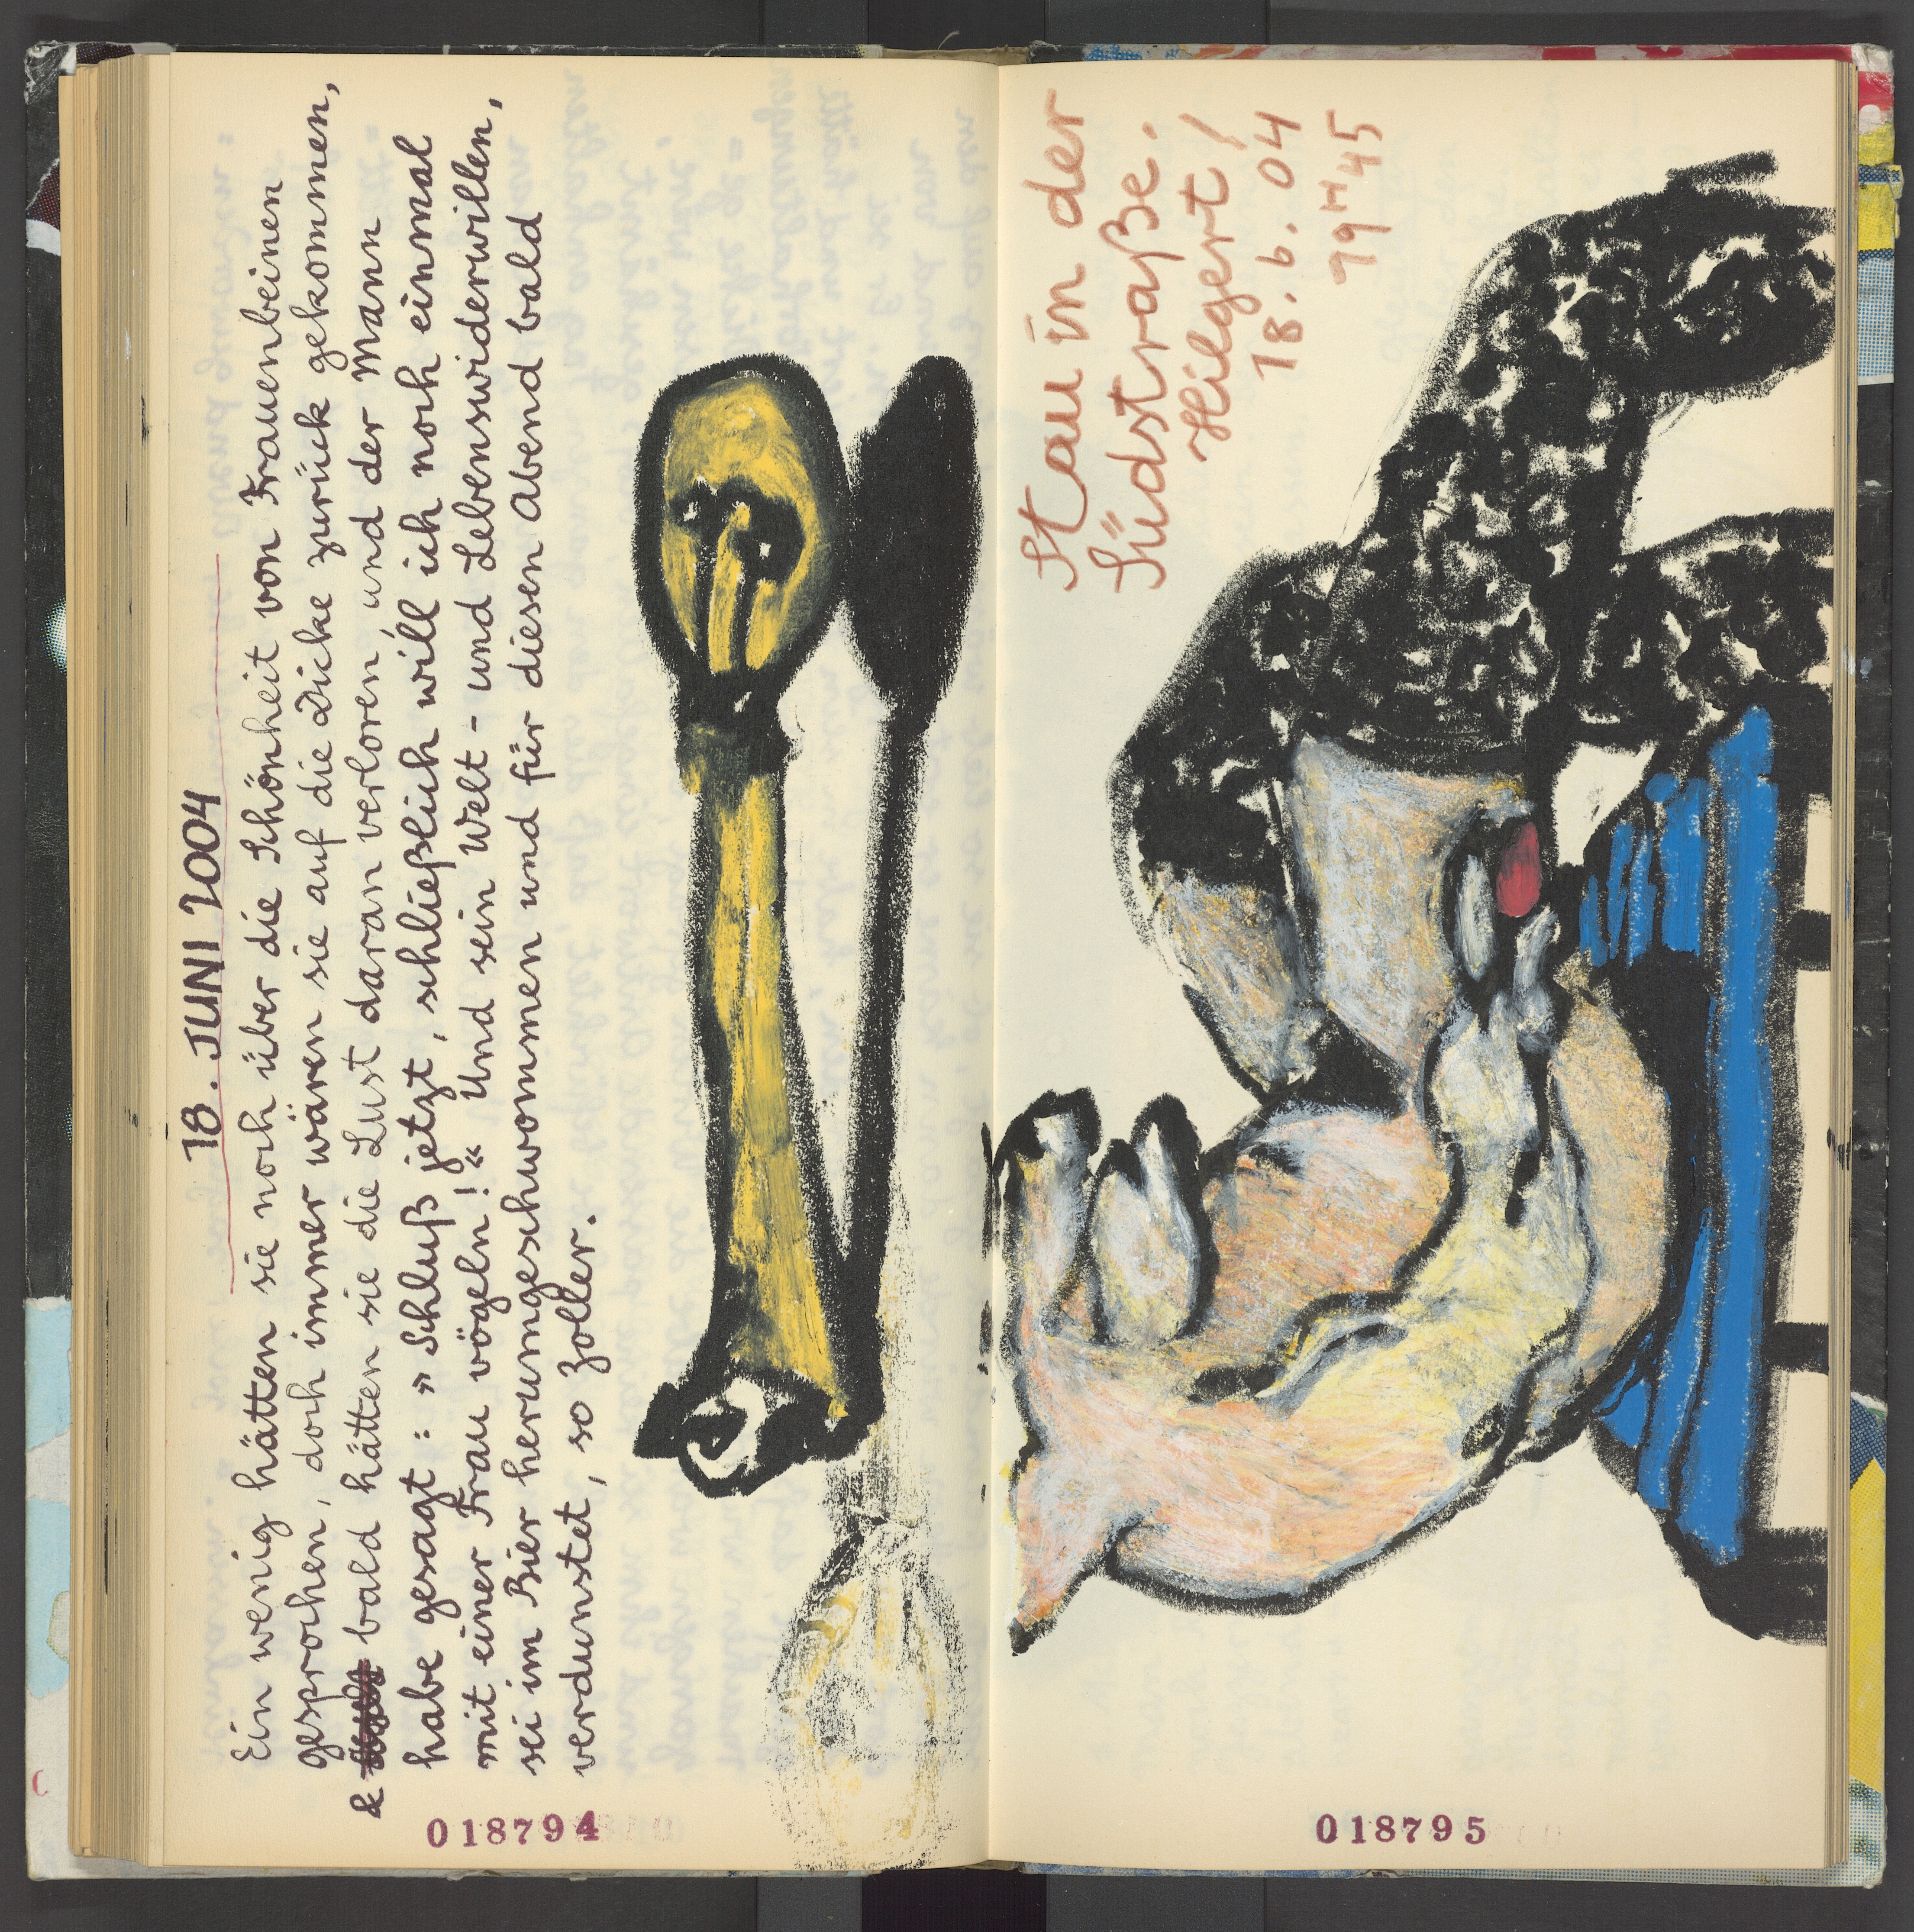 18. JUNI 2004
Ein wenig hätten sie noch über die Schönheit von Frauenbeinen
gesprochen, doch immer wären sie auf die Dicke zurück gekommen,
& bald hätten sie die Lust daran verloren, und der Mann
habe gesagt: »Schluß jetzt, schließlich will ich noch einmal
mit einer Frau vögeln!« Und sein Welt- und Lebenswiderwillen,
sei im Bier herumgeschwommen und für diesen Abend bald
verdunstet, so Zoller.
018794
Stau in der
Südstraße.
Hilgert!
18. 6. 04
19 H 45
018795